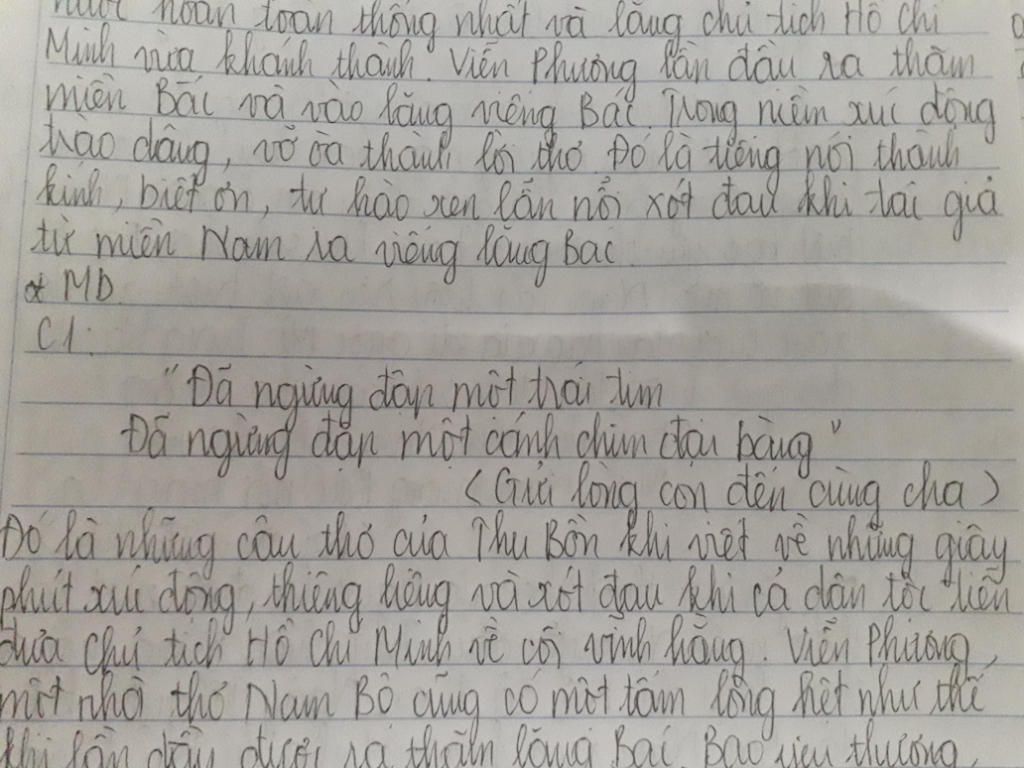 nước hoàn toàn thống nhất và lăng chủ tịch Hồ Chí
Minh vừa khánh thành. Viễn Phương lần đầu ra thăm
miền Bắc và vào lăng viếng Bác. Trong niềm xúc động
trào dâng, vỡ òa thành lời thơ. Đó là tiếng nói thành
kính, biết ơn, tự hào xen lẫn nỗi xót đau khi tác giả
từ miền Nam ra viếng lăng Bác
* MB
C1:
"Đã ngừng đập một trái tim
Đã ngừng đập một cánh chim đại bàng"
(Gửi lòng con đến cùng cha)
Đó là những câu thơ của Thu Bồn khi viết về những giây
phút xúc động, thiêng liêng và xót đau khi cả dân tộc tiễn
đưa chủ tịch Hồ Chí Minh về cõi vĩnh hằng. Viễn Phương,
một nhà thơ Nam Bộ cũng có một tấm lòng hệt như thế
khi lần đầu được ra thăm lăng Bác. Bao yêu thương,